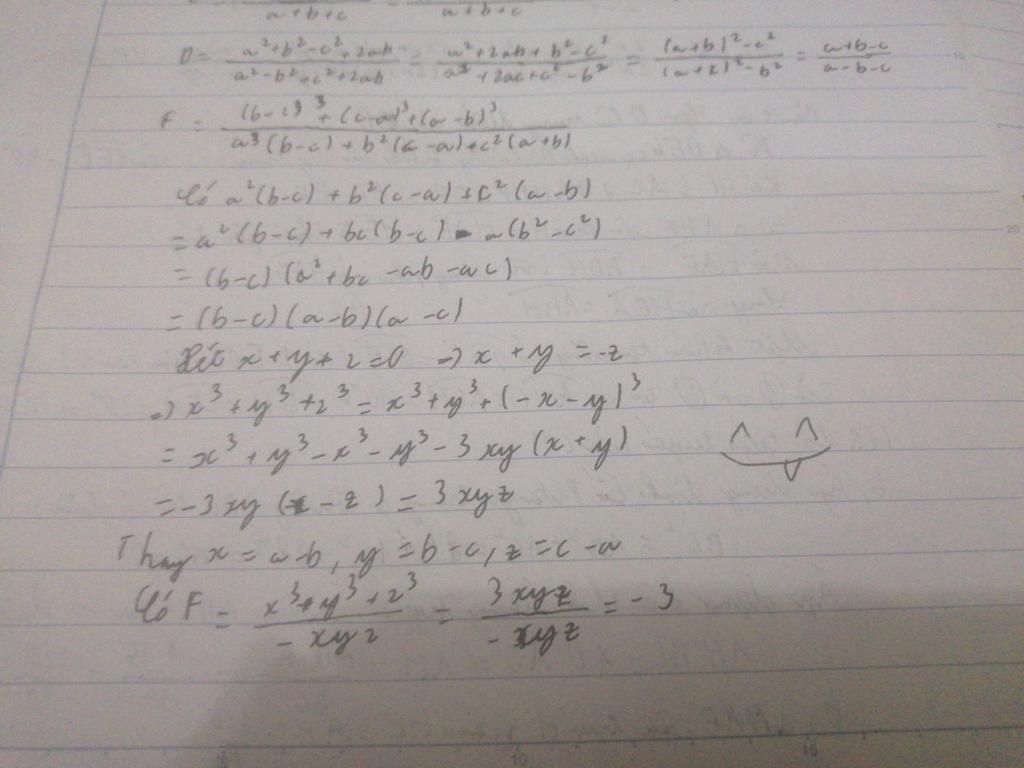 a+b+c a+b+c
D = (a²+b²-c²+2ab)/(a²-b²+c²+2ab) = (a²+2ab+b²-c²)/(a²+2ac+c²-b²) = ((a+b)²-c²)/((a+c)²-b²) = (a+b-c)/(a-b-c)
F = ((b-c)³+(c-a)³+(a-b)³)/(a³(b-c)+b²(c-a)+c²(a+b))
Có a²(b-c)+b²(c-a)+c²(a-b)
= a²(b-c)+bc(b-c)-a(b²-c²)
= (b-c)(a²+bc-ab-ac)
= (b-c)(a-b)(a-c)
Xét x+y+z=0 => x+y=-z
=> x³+y³+z³=x³+y³+(-x-y)³
= x³+y³-x³-y³-3xy(x+y)
= -3xy(-z)=3xyz
Thay x=a-b, y=b-c, z=c-a
Có F = (x³+y³+z³)/(-xyz) = 3xyz/(-xyz) = -3
20
10
15